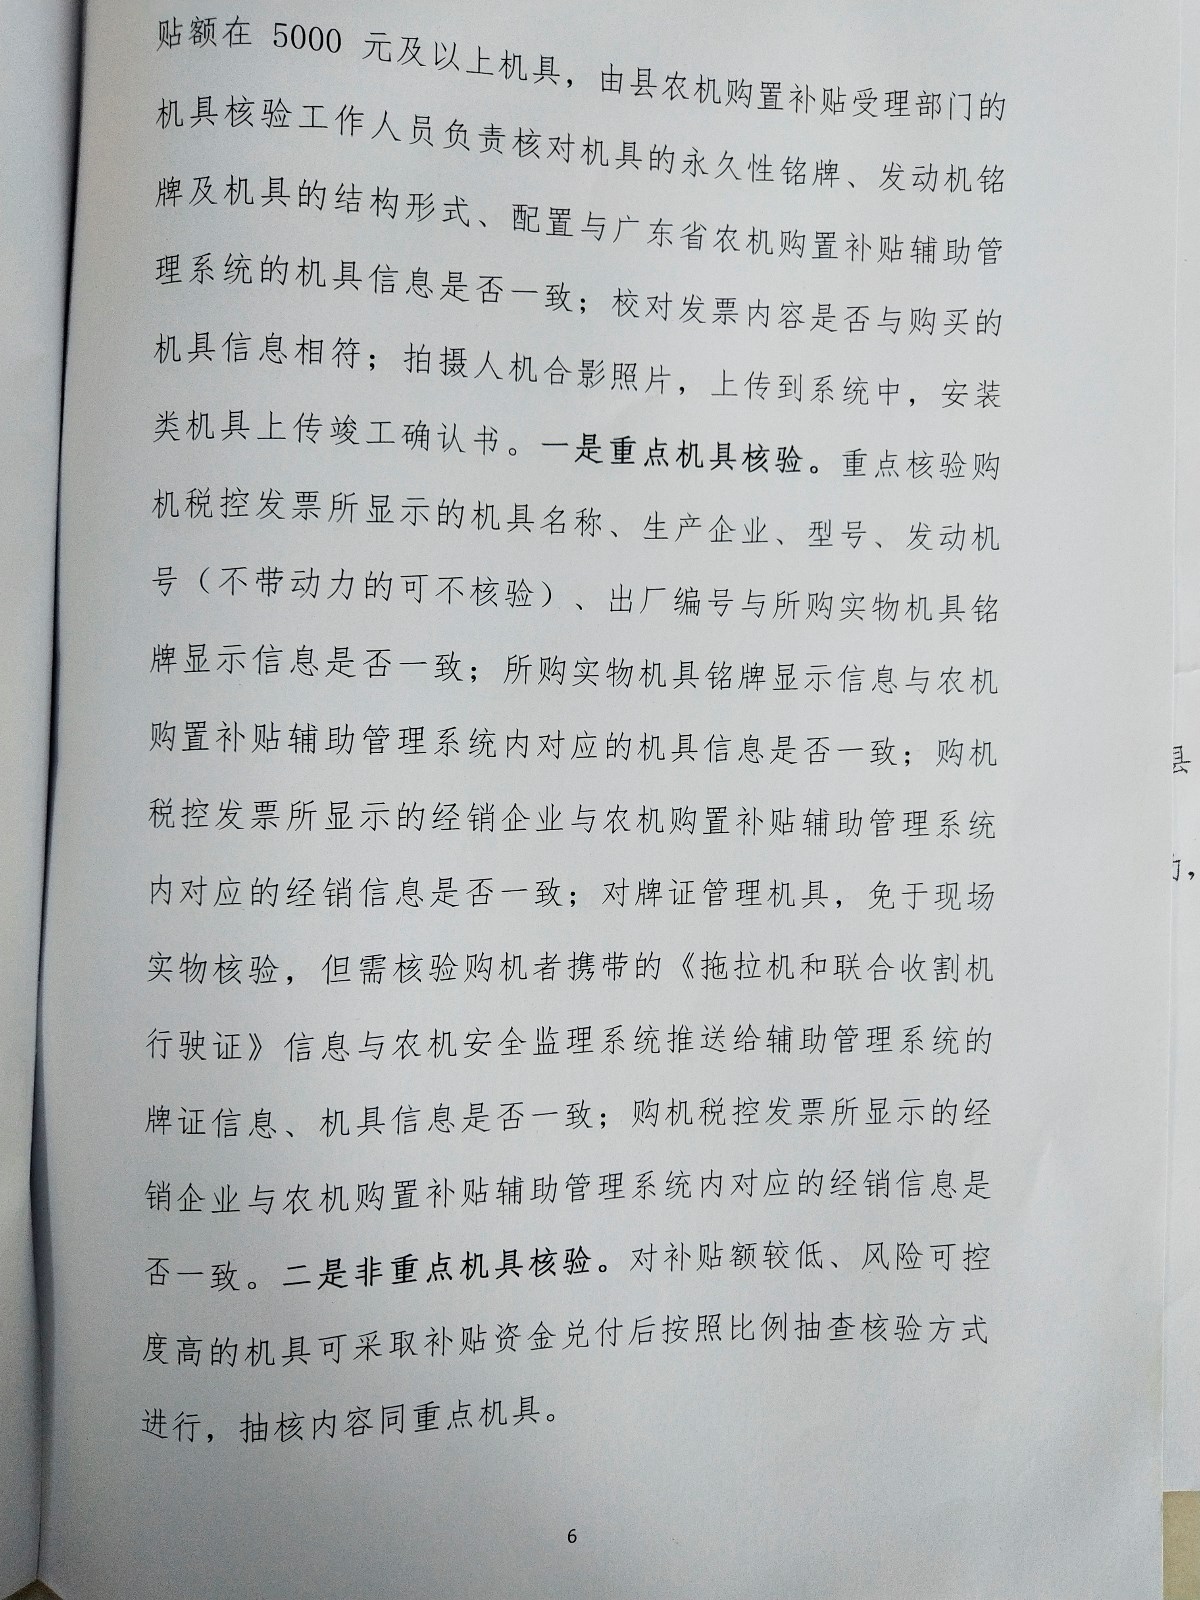 贴额在 5000 元及以上机具，由县农机购置补贴受理部门的
机具核验工作人员负责核对机具的永久性铭牌、发动机铭
牌及机具的结构形式、配置与广东省农机购置补贴辅助管
理系统的机具信息是否一致；校对发票内容是否与购买的
机具信息相符；拍摄人机合影照片，上传到系统中，安装
类机具上传竣工确认书。一是重点机具核验。重点核验购
机税控发票所显示的机具名称、生产企业、型号、发动机
号（不带动力的可不核验）、出厂编号与所购实物机具铭
牌显示信息是否一致；所购实物机具铭牌显示信息与农机
购置补贴辅助管理系统内对应的机具信息是否一致；购机
税控发票所显示的经销企业与农机购置补贴辅助管理系统
内对应的经销信息是否一致；对牌证管理机具，免于现场
实物核验，但需核验购机者携带的《拖拉机和联合收割机
行驶证》信息与农机安全监理系统推送给辅助管理系统的
牌证信息、机具信息是否一致；购机税控发票所显示的经
销企业与农机购置补贴辅助管理系统内对应的经销信息是
否一致。二是非重点机具核验。对补贴额较低、风险可控
度高的机具可采取补贴资金兑付后按照比例抽查核验方式
进行，抽核内容同重点机具。
6
县